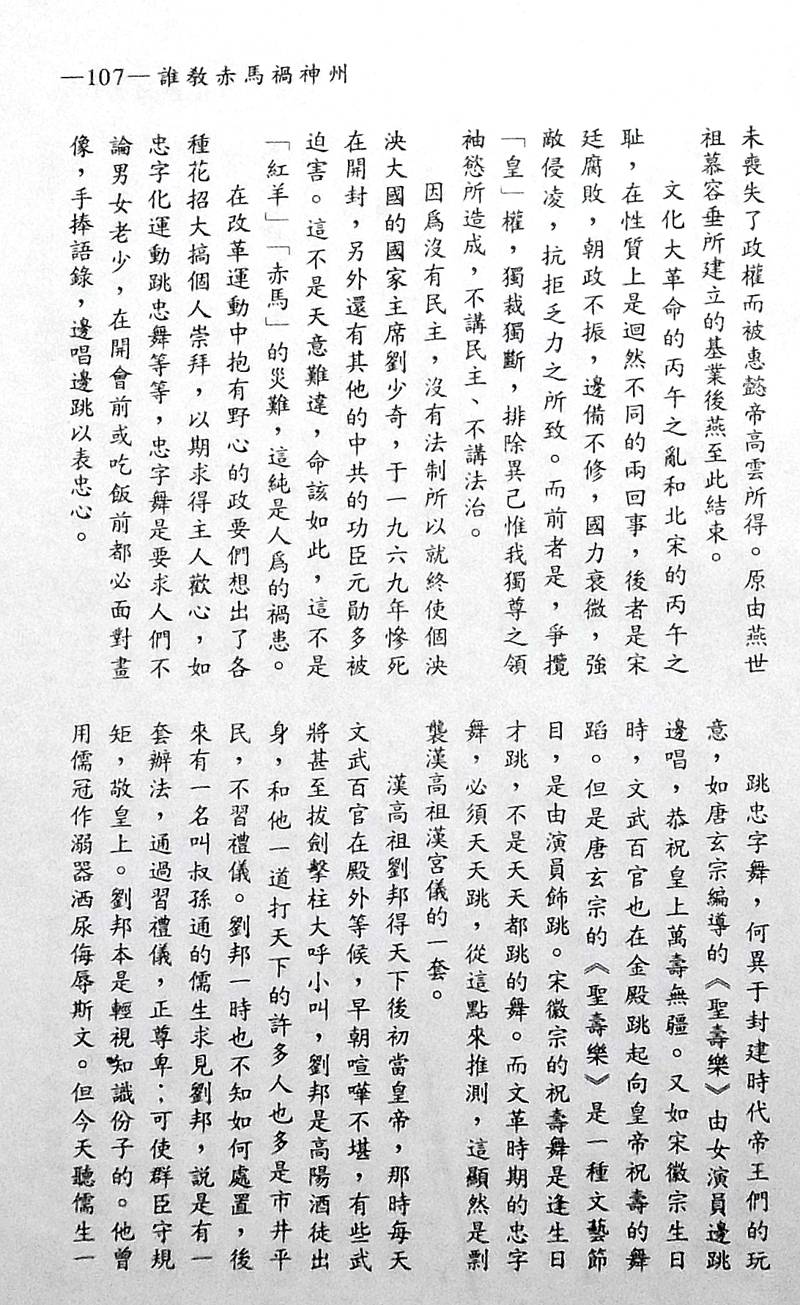 —107—誰教赤馬禍神州
未喪失了政權而被惠懿帝高雲所得。原由燕世
祖慕容垂所建立的基業後燕至此結束。
文化大革命的丙午之亂和北宋的丙午之
耻，在性質上是迴然不同的兩回事，後者是宋
廷腐敗，朝政不振，邊備不修，國力衰微，強
敵侵凌，抗拒乏力之所致。而前者是，爭攬
「皇」權，獨裁獨斷，排除異己惟我獨尊之領
袖慾所造成，不講民主、不講法治。
因爲沒有民主，沒有法制所以就終使個泱
泱大國的國家主席劉少奇，于一九六九年慘死
在開封，另外還有其他的中共的功臣元勛多被
迫害。這不是天意難違，命該如此，這不是
「紅羊」「赤馬」的災難，這純是人爲的禍患。
在改革運動中抱有野心的政要們想出了各
種花招大搞個人崇拜，以期求得主人歡心，如
忠字化運動跳忠舞等等，忠字舞是要求人們不
論男女老少，在開會前或吃飯前都必面對畫
像，手捧語錄，邊唱邊跳以表忠心。
跳忠字舞，何異于封建時代帝王們的玩
意，如唐玄宗編導的《聖壽樂》由女演員邊跳
邊唱，恭祝皇上萬壽無疆。又如宋徽宗生日
時，文武百官也在金殿跳起向皇帝祝壽的舞
蹈。但是唐玄宗的《聖壽樂》是一種文藝節
目，是由演員飾跳。宋徽宗的祝壽舞是逢生日
才跳，不是天天都跳的舞。而文革時期的忠字
舞，必須天天跳，從這點來推測，這顯然是剽
襲漢高祖漢宮儀的一套。
漢高祖劉邦得天下後初當皇帝，那時每天
文武百官在殿外等候，早朝喧嘩不堪，有些武
將甚至拔劍擊柱大呼小叫，劉邦是高陽酒徒出
身，和他一道打天下的許多人也多是市井平
民，不習禮儀。劉邦一時也不知如何處置，後
來有一名叫叔孫通的儒生求見劉邦，說是有一
套辦法，通過習禮儀，正尊卑；可使群臣守規
矩，敬皇上。劉邦本是輕視知識份子的。他曾
用儒冠作溺器洒尿侮辱斯文。但今天聽儒生一